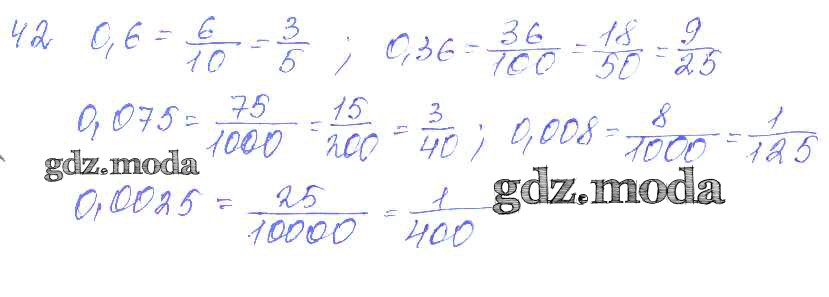 42 0,6 = 6/10 = 3/5 ; 0,36 = 36/100 = 18/50 = 9/25
0,075 = 75/1000 = 15/200 = 3/40 ; 0,008 = 8/1000 = 1/125
gdz.moda
0,0025 = 25/10000 = 1/400
gdz.moda